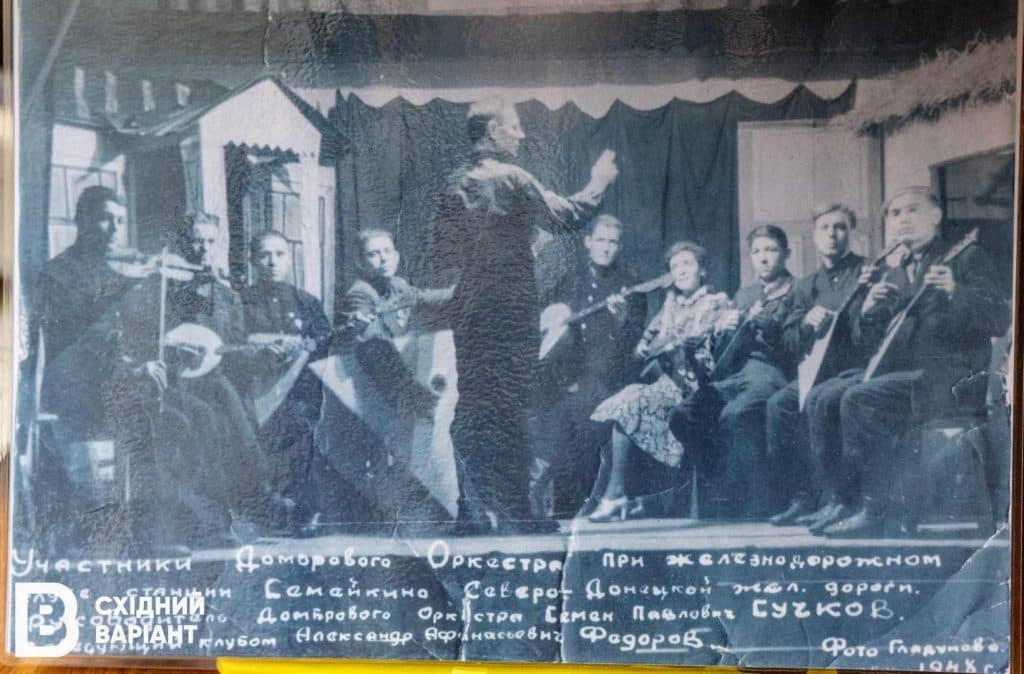 Участники Доморового Оркестра при железнодорожном
станции Семейкино Северо-Донецкой жел. дороги.
Домбрового Оркестра Семен Павлович Сучков.
клубом Александр Афанасьевич Федоров.
Фото Гладунова
194 г.
СХІДНИЙ
ВАРІАНТ